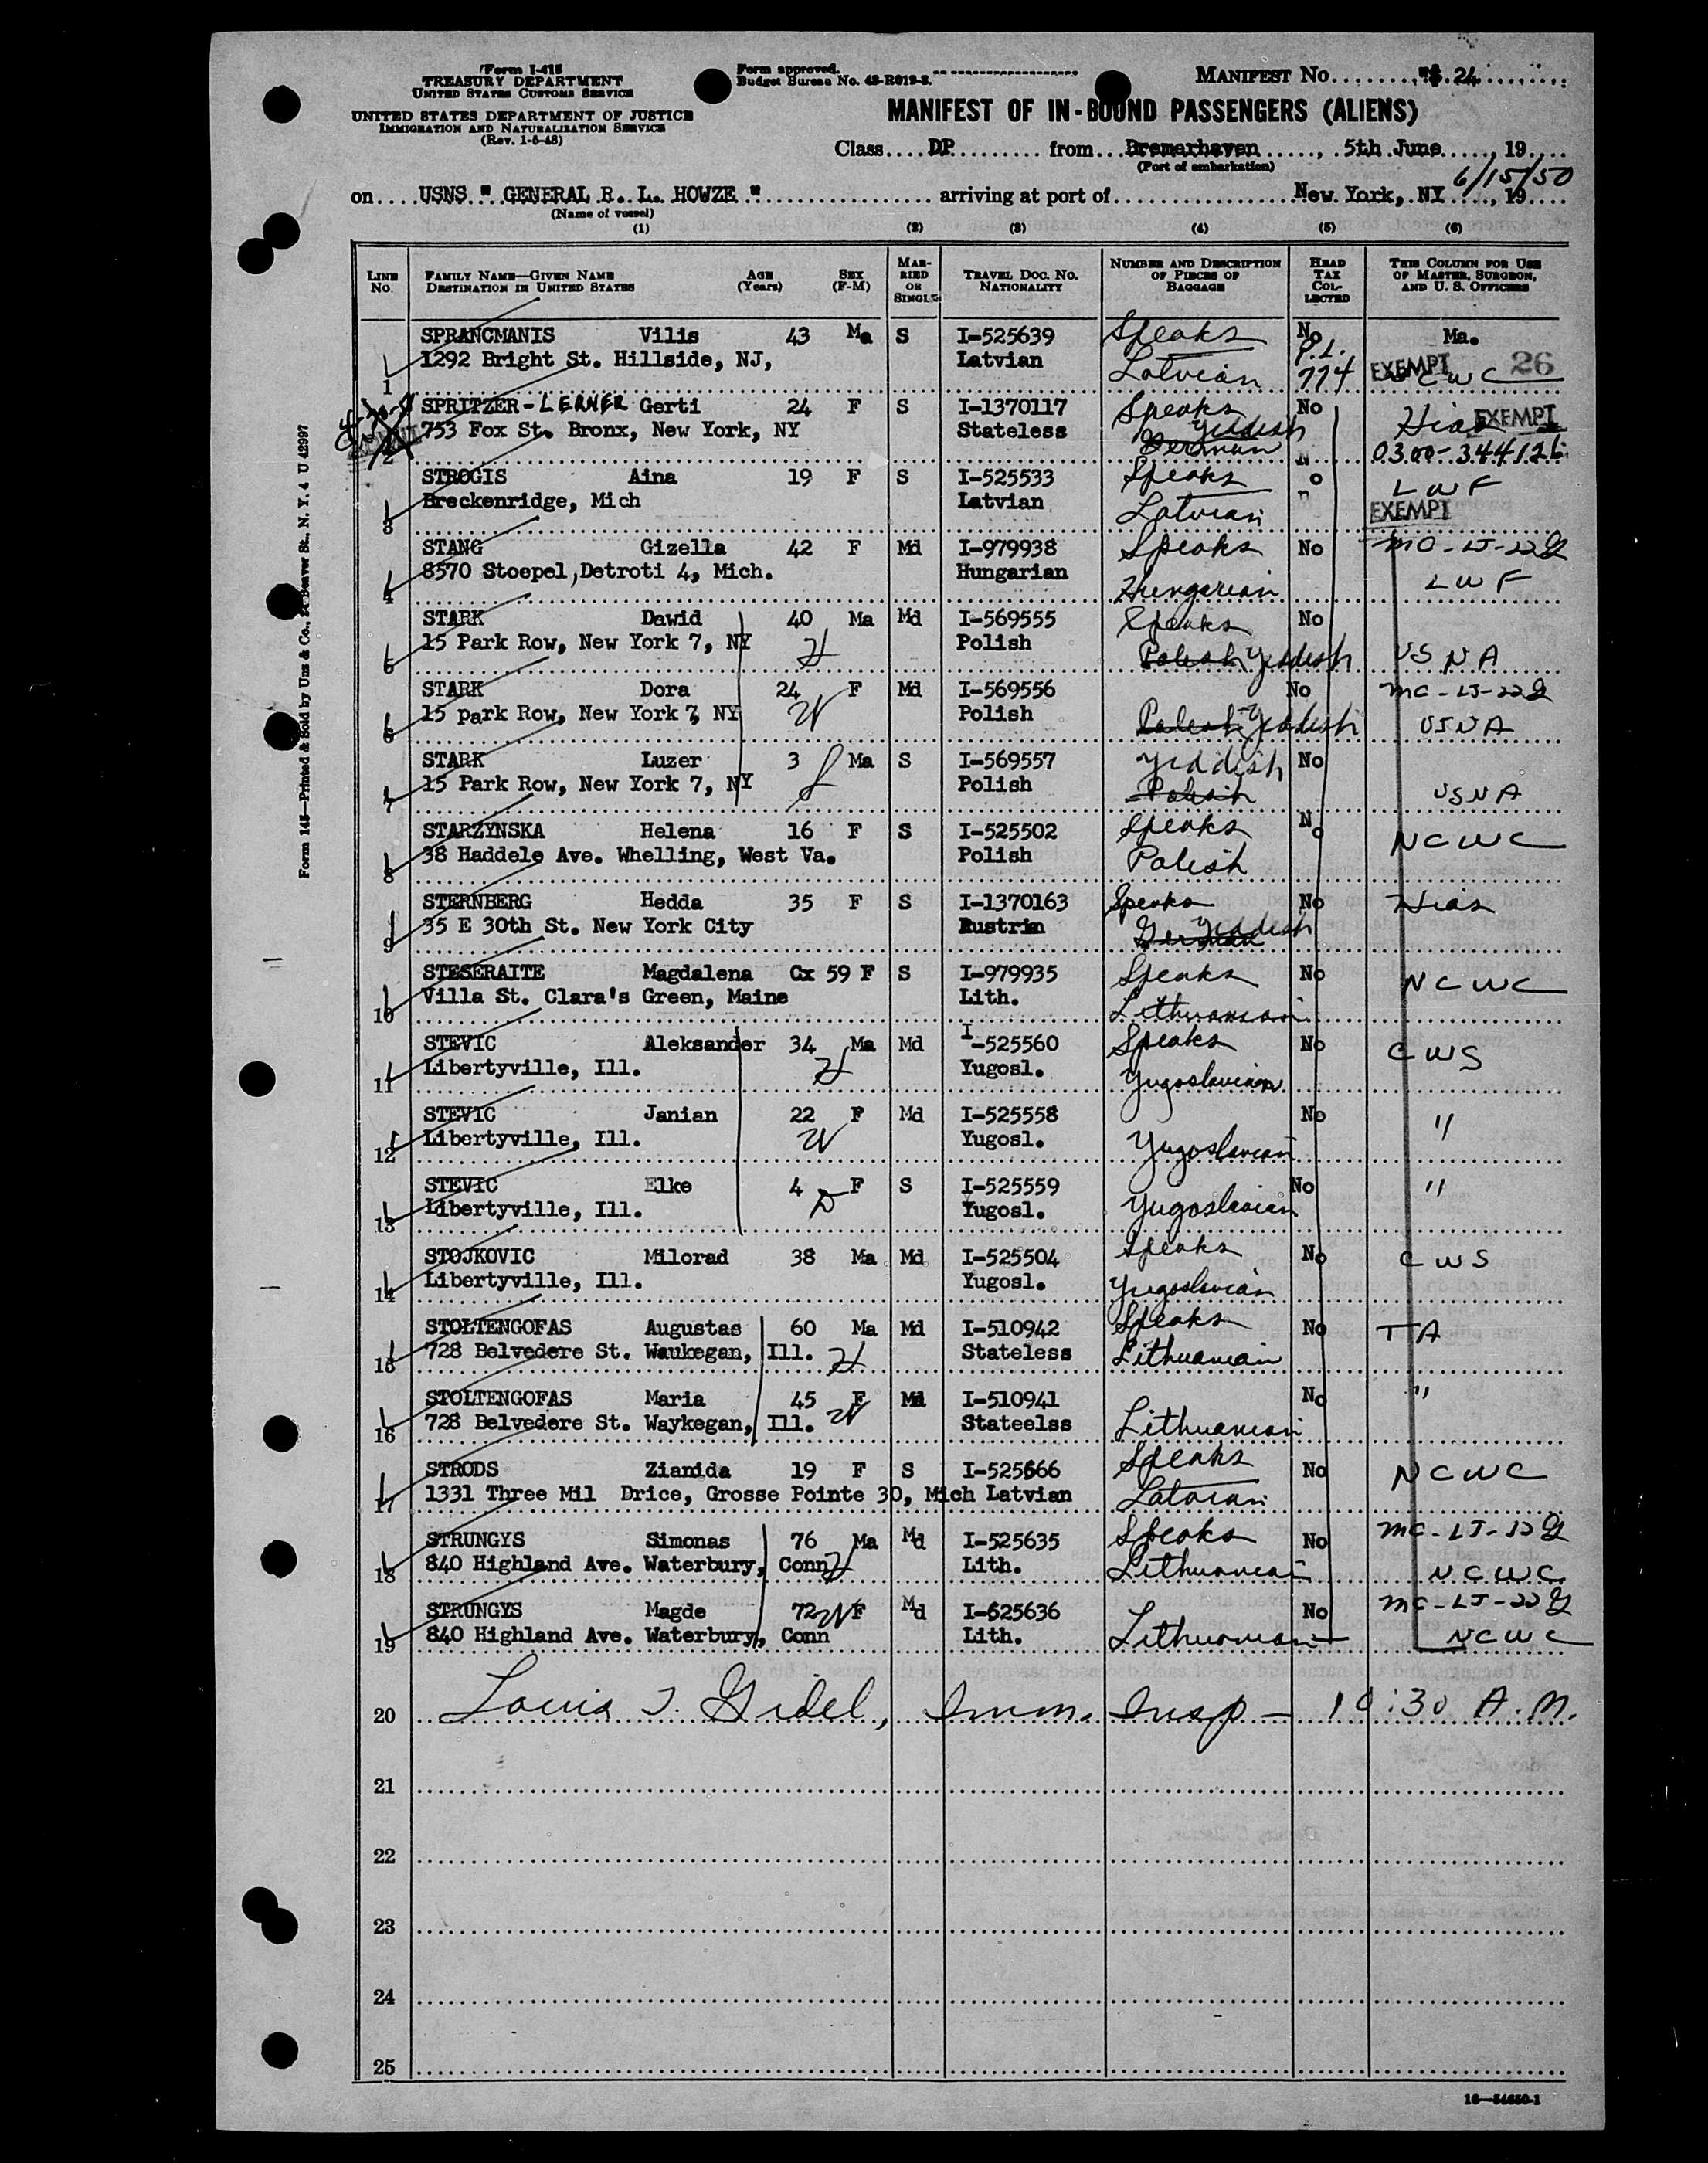 Form I-415
TREASURY DEPARTMENT
UNITED STATES CUSTOMS SERVICE
UNITED STATES DEPARTMENT OF JUSTICE
IMMIGRATION AND NATURALIZATION SERVICE
(Rev. 1-5-48)
Form approved.
Budget Bureau No. 43-R019-3.
MANIFEST NO. 24
MANIFEST OF IN-BOUND PASSENGERS (ALIENS)
Class DP from Bremerhaven, 5th June, 19
(Port of embarkation)
6/15/50
on USNS " GENERAL R. L. HOWZE " arriving at port of New York, NY, 19
(Name of vessel)
(1) (2) (3) (4) (5) (6)
LINE NO. FAMILY NAME—GIVEN NAME DESTINATION IN UNITED STATES AGE (Years) SEX (F-M) MARRIED OR SINGLE TRAVEL DOC. NO. NATIONALITY NUMBER AND DESCRIPTION OF PIECES OF BAGGAGE HEAD TAX COLLECTED THIS COLUMN FOR USE OF MASTER, SURGEON, AND U. S. OFFICERS
SPRANCMANIS Vilis 43 Ma S I-525639 Speaks No Ma.
1 1292 Bright St. Hillside, NJ, Latvian Latvian P.L. 774 EXEMPT 26 NCWC
SPRITZER-LERNER Gerti 24 F S I-1370117 Speaks No Hias EXEMPT
2 753 Fox St. Bronx, New York, NY Stateless Yiddish German 0300-344126
STROGIS Aina 19 F S I-525533 Speaks No LWF
3 Breckenridge, Mich Latvian Latvian EXEMPT
STANG Gizella 42 F Md I-979938 Speaks No
4 8570 Stoepel, Detroti 4, Mich. Hungarian Hungarian LWF
STARK Dawid 40 Ma Md I-569555 Speaks No
5 15 Park Row, New York 7, NY H Polish Polish Yiddish USNA
STARK Dora 24 F Md I-569556 No
6 15 park Row, New York 7, NY W Polish Polish Yiddish USNA
STARK Luzer 3 Ma S I-569557 Yiddish No
7 15 Park Row, New York 7, NY S Polish Polish USNA
STARZYNSKA Helena 16 F S I-525502 Speaks No NCWC
8 38 Haddele Ave. Whelling, West Va. Polish Polish
STERNBERG Hedda 35 F S I-1370163 Speaks No Hias
9 35 E 30th St. New York City Austrin Yiddish German
STESERAITE Magdalena Cx 59 F S I-979935 Speaks No NCWC
10 Villa St. Clara's Green, Maine Lith. Lithuanian
STEVIC Aleksander 34 Ma Md I-525560 Speaks No CWS
11 Libertyville, Ill. H Yugosl. Yugoslavian
STEVIC Janian 22 F Md I-525558 No "
12 Libertyville, Ill. W Yugosl. Yugoslavian
STEVIC Elke 4 F S I-525559 No "
13 Libertyville, Ill. D Yugosl. Yugoslavian
STOJKOVIC Milorad 38 Ma Md I-525504 Speaks No CWS
14 Libertyville, Ill. Yugosl. Yugoslavian
STOLTENGOFAS Augustas 60 Ma Md I-510942 Speaks No TA
15 728 Belvedere St. Waukegan, Ill. H Stateless Lithuanian
STOLTENGOFAS Maria 45 F Md I-510941 No "
16 728 Belvedere St. Waykegan, Ill. W Stateelss Lithuanian
STRODS Zianida 19 F S I-525666 Speaks No NCWC
17 1331 Three Mil Drice, Grosse Pointe 30, Mich Latvian Latvian
STRUNGYS Simonas 76 Ma Md I-525635 Speaks No
18 840 Highland Ave. Waterbury, Conn H Lith. Lithuanian NCWC
STRUNGYS Magde 72 W F Md I-525636 No
19 840 Highland Ave. Waterbury, Conn Lith. Lithuanian NCWC
20 Louis J. Gidel, Imm. Insp — 10:30 A.M.
21
22
23
24
25
16—54650-1